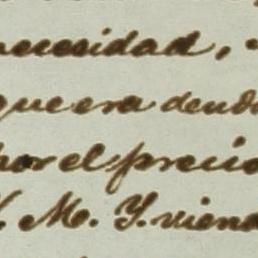 necesidad,
que era deudo
por el precio
M. Y. viend